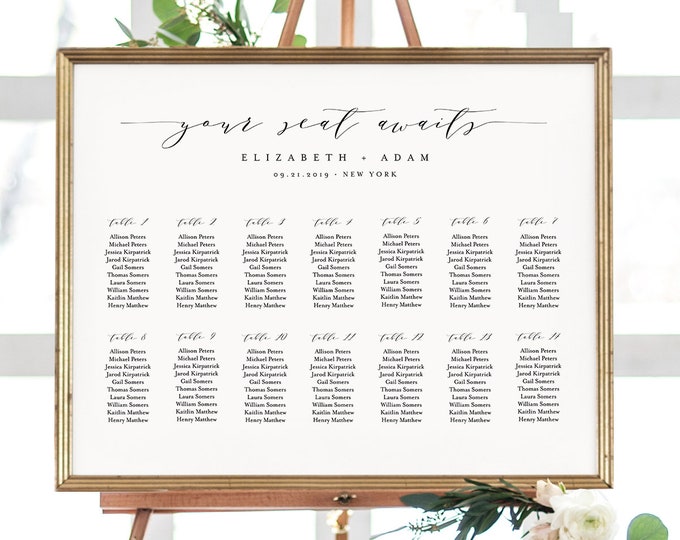 your seat awaits
ELIZABETH + ADAM
09.21.2019 • NEW YORK
table 1
Allison Peters
Michael Peters
Jessica Kirpatrick
Jarod Kirpatrick
Gail Somers
Thomas Somers
Laura Somers
William Somers
Kaitlin Matthew
Henry Matthew
table 2
Allison Peters
Michael Peters
Jessica Kirpatrick
Jarod Kirpatrick
Gail Somers
Thomas Somers
Laura Somers
William Somers
Kaitlin Matthew
Henry Matthew
table 3
Allison Peters
Michael Peters
Jessica Kirpatrick
Jarod Kirpatrick
Gail Somers
Thomas Somers
Laura Somers
William Somers
Kaitlin Matthew
Henry Matthew
table 4
Allison Peters
Michael Peters
Jessica Kirpatrick
Jarod Kirpatrick
Gail Somers
Thomas Somers
Laura Somers
William Somers
Kaitlin Matthew
Henry Matthew
table 5
Allison Peters
Michael Peters
Jessica Kirpatrick
Jarod Kirpatrick
Gail Somers
Thomas Somers
Laura Somers
William Somers
Kaitlin Matthew
Henry Matthew
table 6
Allison Peters
Michael Peters
Jessica Kirpatrick
Jarod Kirpatrick
Gail Somers
Thomas Somers
Laura Somers
William Somers
Kaitlin Matthew
Henry Matthew
table 7
Allison Peters
Michael Peters
Jessica Kirpatrick
Jarod Kirpatrick
Gail Somers
Thomas Somers
Laura Somers
William Somers
Kaitlin Matthew
Henry Matthew
table 8
Allison Peters
Michael Peters
Jessica Kirpatrick
Jarod Kirpatrick
Gail Somers
Thomas Somers
Laura Somers
William Somers
Kaitlin Matthew
Henry Matthew
table 9
Allison Peters
Michael Peters
Jessica Kirpatrick
Jarod Kirpatrick
Gail Somers
Thomas Somers
Laura Somers
William Somers
Kaitlin Matthew
Henry Matthew
table 10
Allison Peters
Michael Peters
Jessica Kirpatrick
Jarod Kirpatrick
Gail Somers
Thomas Somers
Laura Somers
William Somers
Kaitlin Matthew
Henry Matthew
table 11
Allison Peters
Michael Peters
Jessica Kirpatrick
Jarod Kirpatrick
Gail Somers
Thomas Somers
Laura Somers
William Somers
Kaitlin Matthew
Henry Matthew
table 12
Allison Peters
Michael Peters
Jessica Kirpatrick
Jarod Kirpatrick
Gail Somers
Thomas Somers
Laura Somers
William Somers
Kaitlin Matthew
Henry Matthew
table 13
Allison Peters
Michael Peters
Jessica Kirpatrick
Jarod Kirpatrick
Gail Somers
Thomas Somers
Laura Somers
William Somers
Kaitlin Matthew
Henry Matthew
table 14
Allison Peters
Michael Peters
Jessica Kirpatrick
Jarod Kirpatrick
Gail Somers
Thomas Somers
Laura Somers
William Somers
Kaitlin Matthew
Henry Matthew